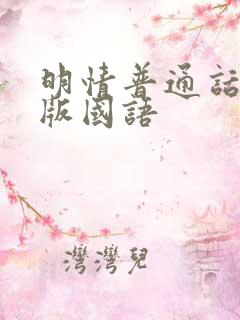 明情普通話
版國語
灣灣兒